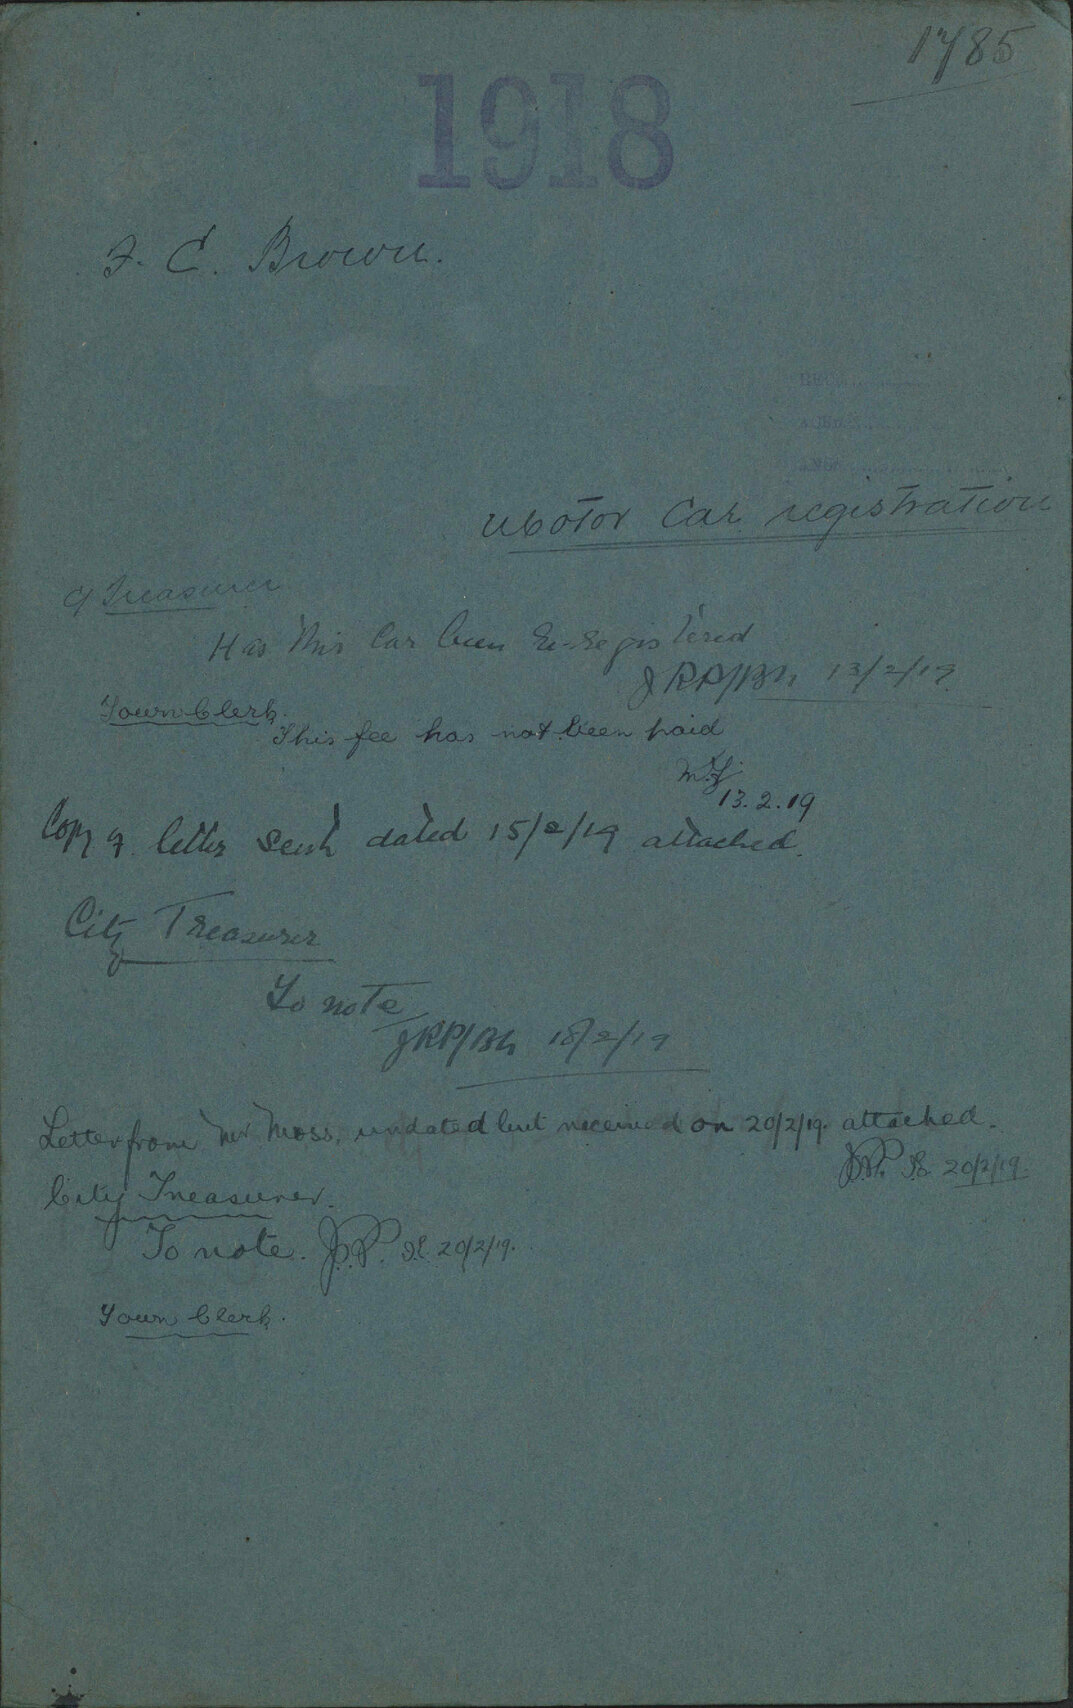 1785
1918
F. C. Brown.
Motor Car registration
C/ Treasurer
Has this Car been Re-registered
JRP/BH 13/2/19
Town Clerk.
This fee has not been paid
13.2.19
Copy of letter sent dated 15/2/19 attached.
City Treasurer
To note
JRP/BH 18/2/19
Letter from Mr Moss, undated but received on 20/2/19. attached.
J.P. 20/2/19.
City Treasurer.
To note. J.P. 20/2/19.
Town Clerk.